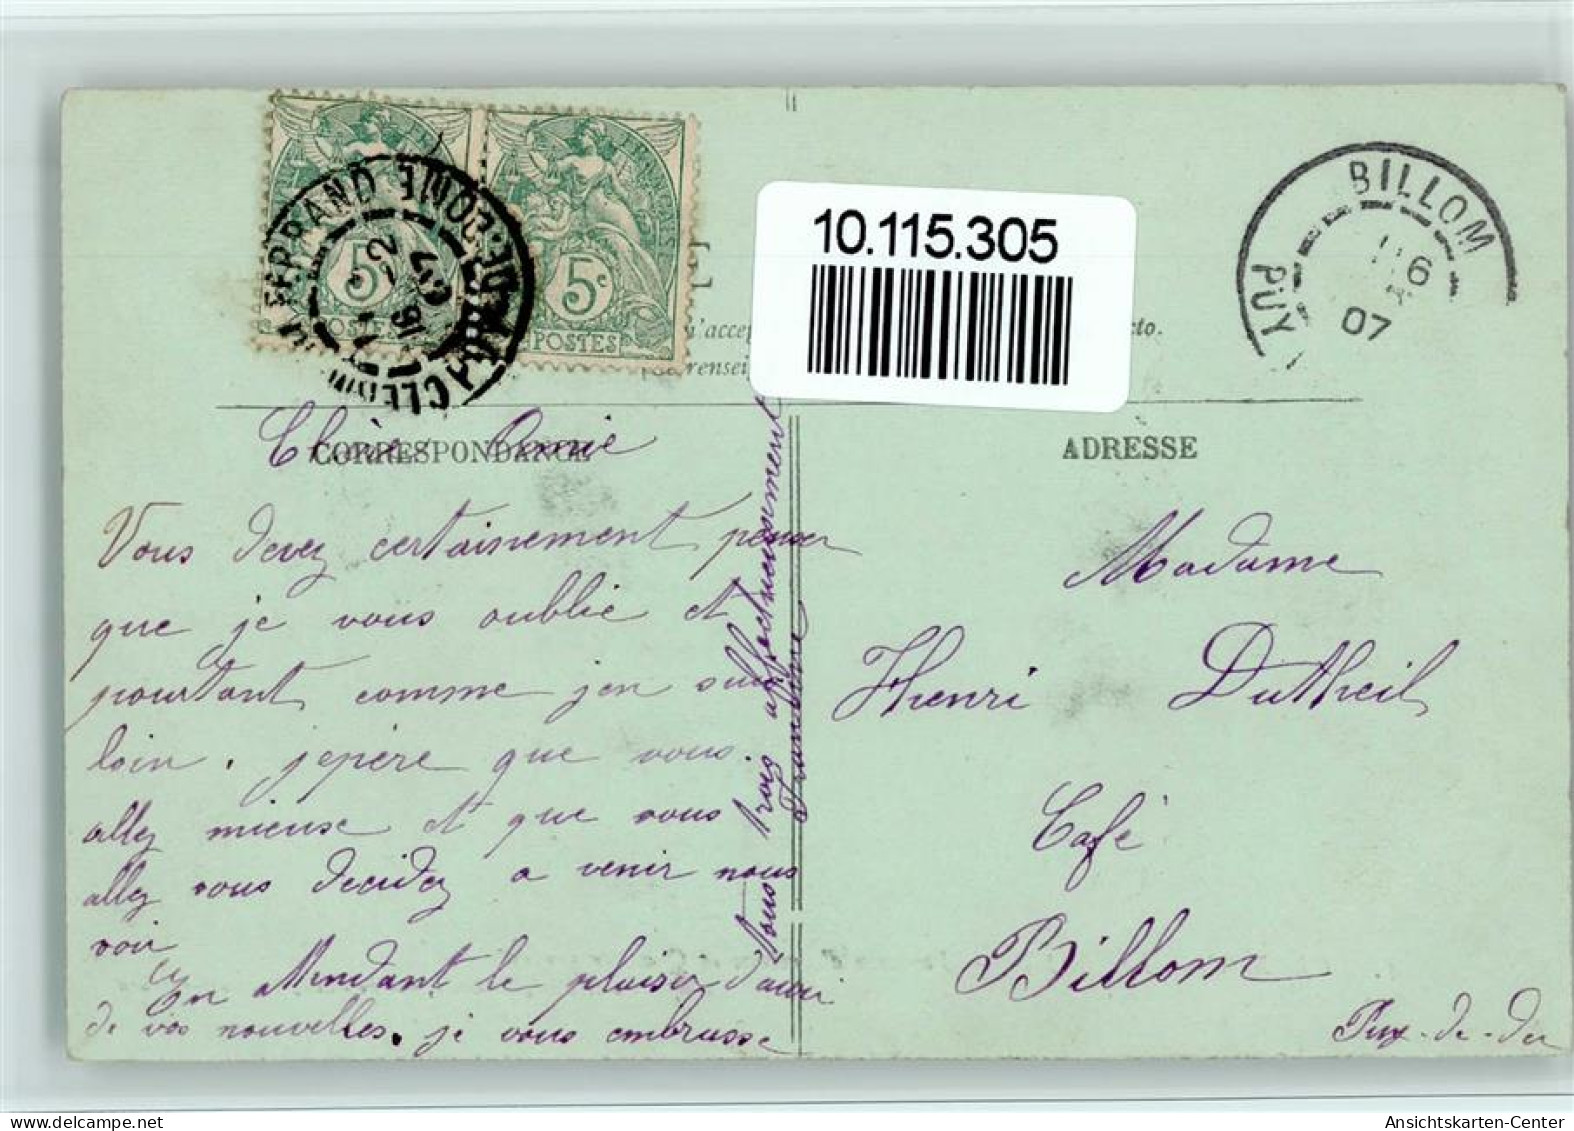 10.115.305
BILLOM
PUY
16
07
CLERMONT FERRAND
PUY-DE-DOME
5c
5c
POSTES
POSTES
CORRESPONDANCE
ADRESSE
Chère Amie
Vous devez certainement penser
que je vous oublie et
pourtant comme j'en suis
loin. j'epère que vous
allez mieuse et que vous
allez vous decidez a venir nous
voir
En Attendant le plaisir d'avoir
de vos nouvelles. je vous embrasse
tous trois affectueusement
Madame
Henri Dutheil
Café
Billom
Puy-de-do
Ansichtskarten-Center